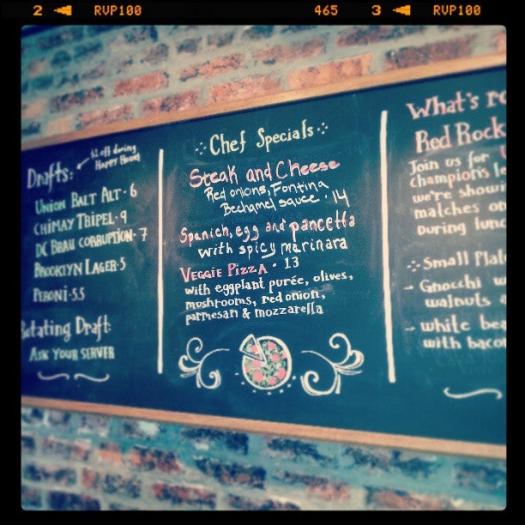 2 RVP100 465 3 RVP100
Drafts:
$1 off during
Happy Hour!
Union Balt Alt · 6
Chimay Tripel · 9
DC Brau Corruption · 7
Brooklyn Lager · 5
Peroni · 5.5
Rotating Draft:
Ask your server
Chef Specials
Steak and Cheese
Red onions, Fontina
Bechamel sauce · 14
Spanich, egg and pancetta
with spicy marinara
Veggie Pizza · 13
with eggplant purée, olives,
mushrooms, red onion,
parmesan & mozzarella
What's
Red Rock
Join us for
champions
we're
matches
During
Small
- Gnocchi
walnuts
- white
with